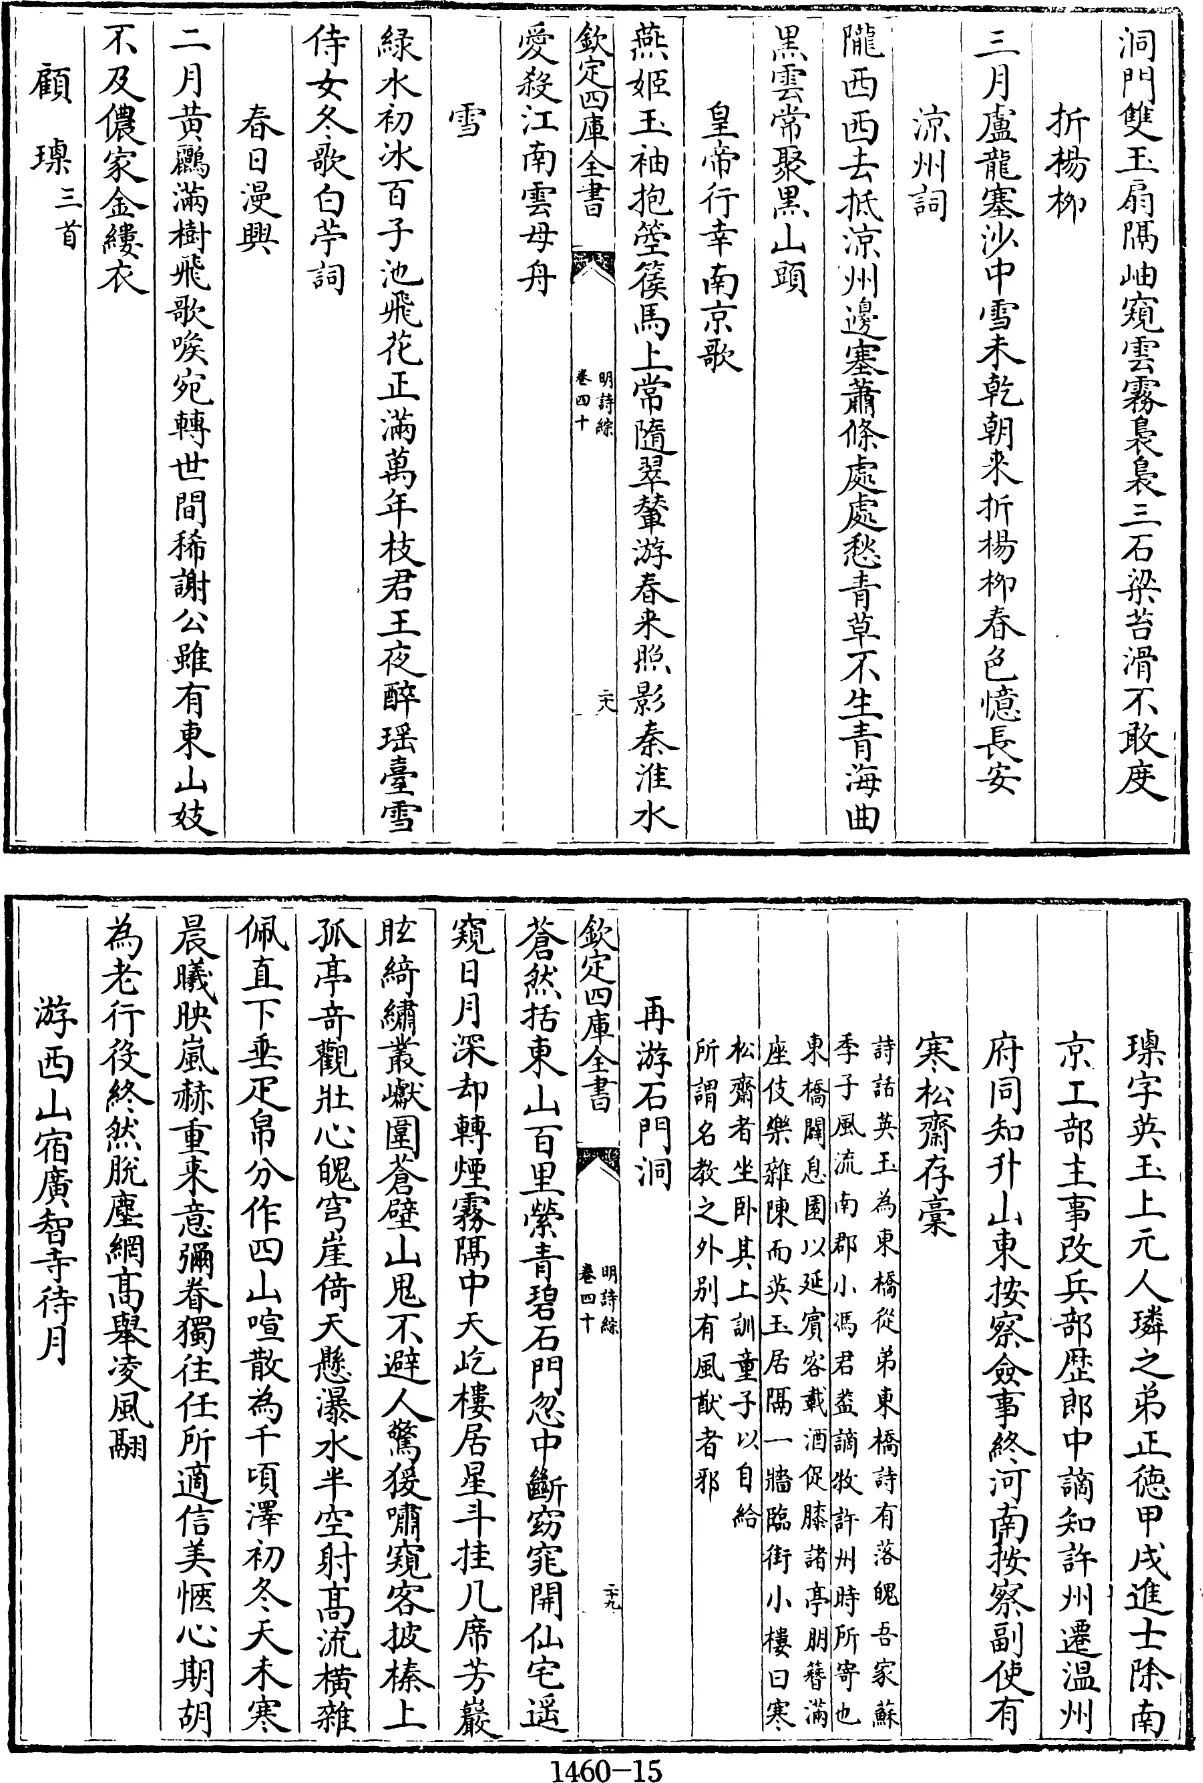 洞門雙玉扇隔岫窺雲霧裊裊三石梁苔滑不敢度
折楊柳
三月盧龍塞沙中雪未乾朝来折楊柳春色憶長安
涼州詞
隴西西去抵涼州邊塞蕭條處處愁青草不生青海曲
黑雲常聚黑山頭
皇帝行幸南京歌
燕姬玉袖抱箜篌馬上常隨翠輦游春来照影秦淮水
欽定四庫全書
明詩綜
卷四十
二十八
愛殺江南雲母舟
雪
緑水初冰百子池飛花正滿萬年枝君王夜醉瑶臺雪
侍女冬歌白苧詞
春日漫興
二月黄鸝滿樹飛歌喉宛轉世間稀謝公雖有東山妓
不及儂家金縷衣
顧瑮三首
瑮字英玉上元人璘之弟正德甲戌進士除南
京工部主事改兵部歴郎中謫知許州遷温州
府同知升山東按察僉事終河南按察副使有
寒松齋存藁
詩話英玉為東橋從弟東橋詩有落魄吾家蘇
季子風流南郡小馮君葢謫牧許州時所寄也
東橋闢息園以延賓客載酒促膝諸亭朋簪滿
座伎樂雜陳而英玉居隔一牆臨街小樓曰寒
松齋者坐卧其上訓童子以自給
所謂名教之外别有風猷者邪
再游石門洞
欽定四庫全書
明詩綜
卷四十
二十九
蒼然括東山百里縈青碧石門忽中斷窈窕開仙宅遥
窺日月深却轉煙霧隔中天屹樓居星斗挂几席芳巖
眩綺繡叢巘圍蒼壁山鬼不避人驚猨嘯窺客披榛上
孤亭奇觀壯心魄穹崖倚天懸瀑水半空射髙流横雜
佩直下垂疋帛分作四山喧散為千頃澤初冬天未寒
晨曦映嵐赫重来意彌眷獨往任所適信美愜心期胡
為老行役終然脱塵網髙舉凌風翮
游西山宿廣智寺待月
1460-15